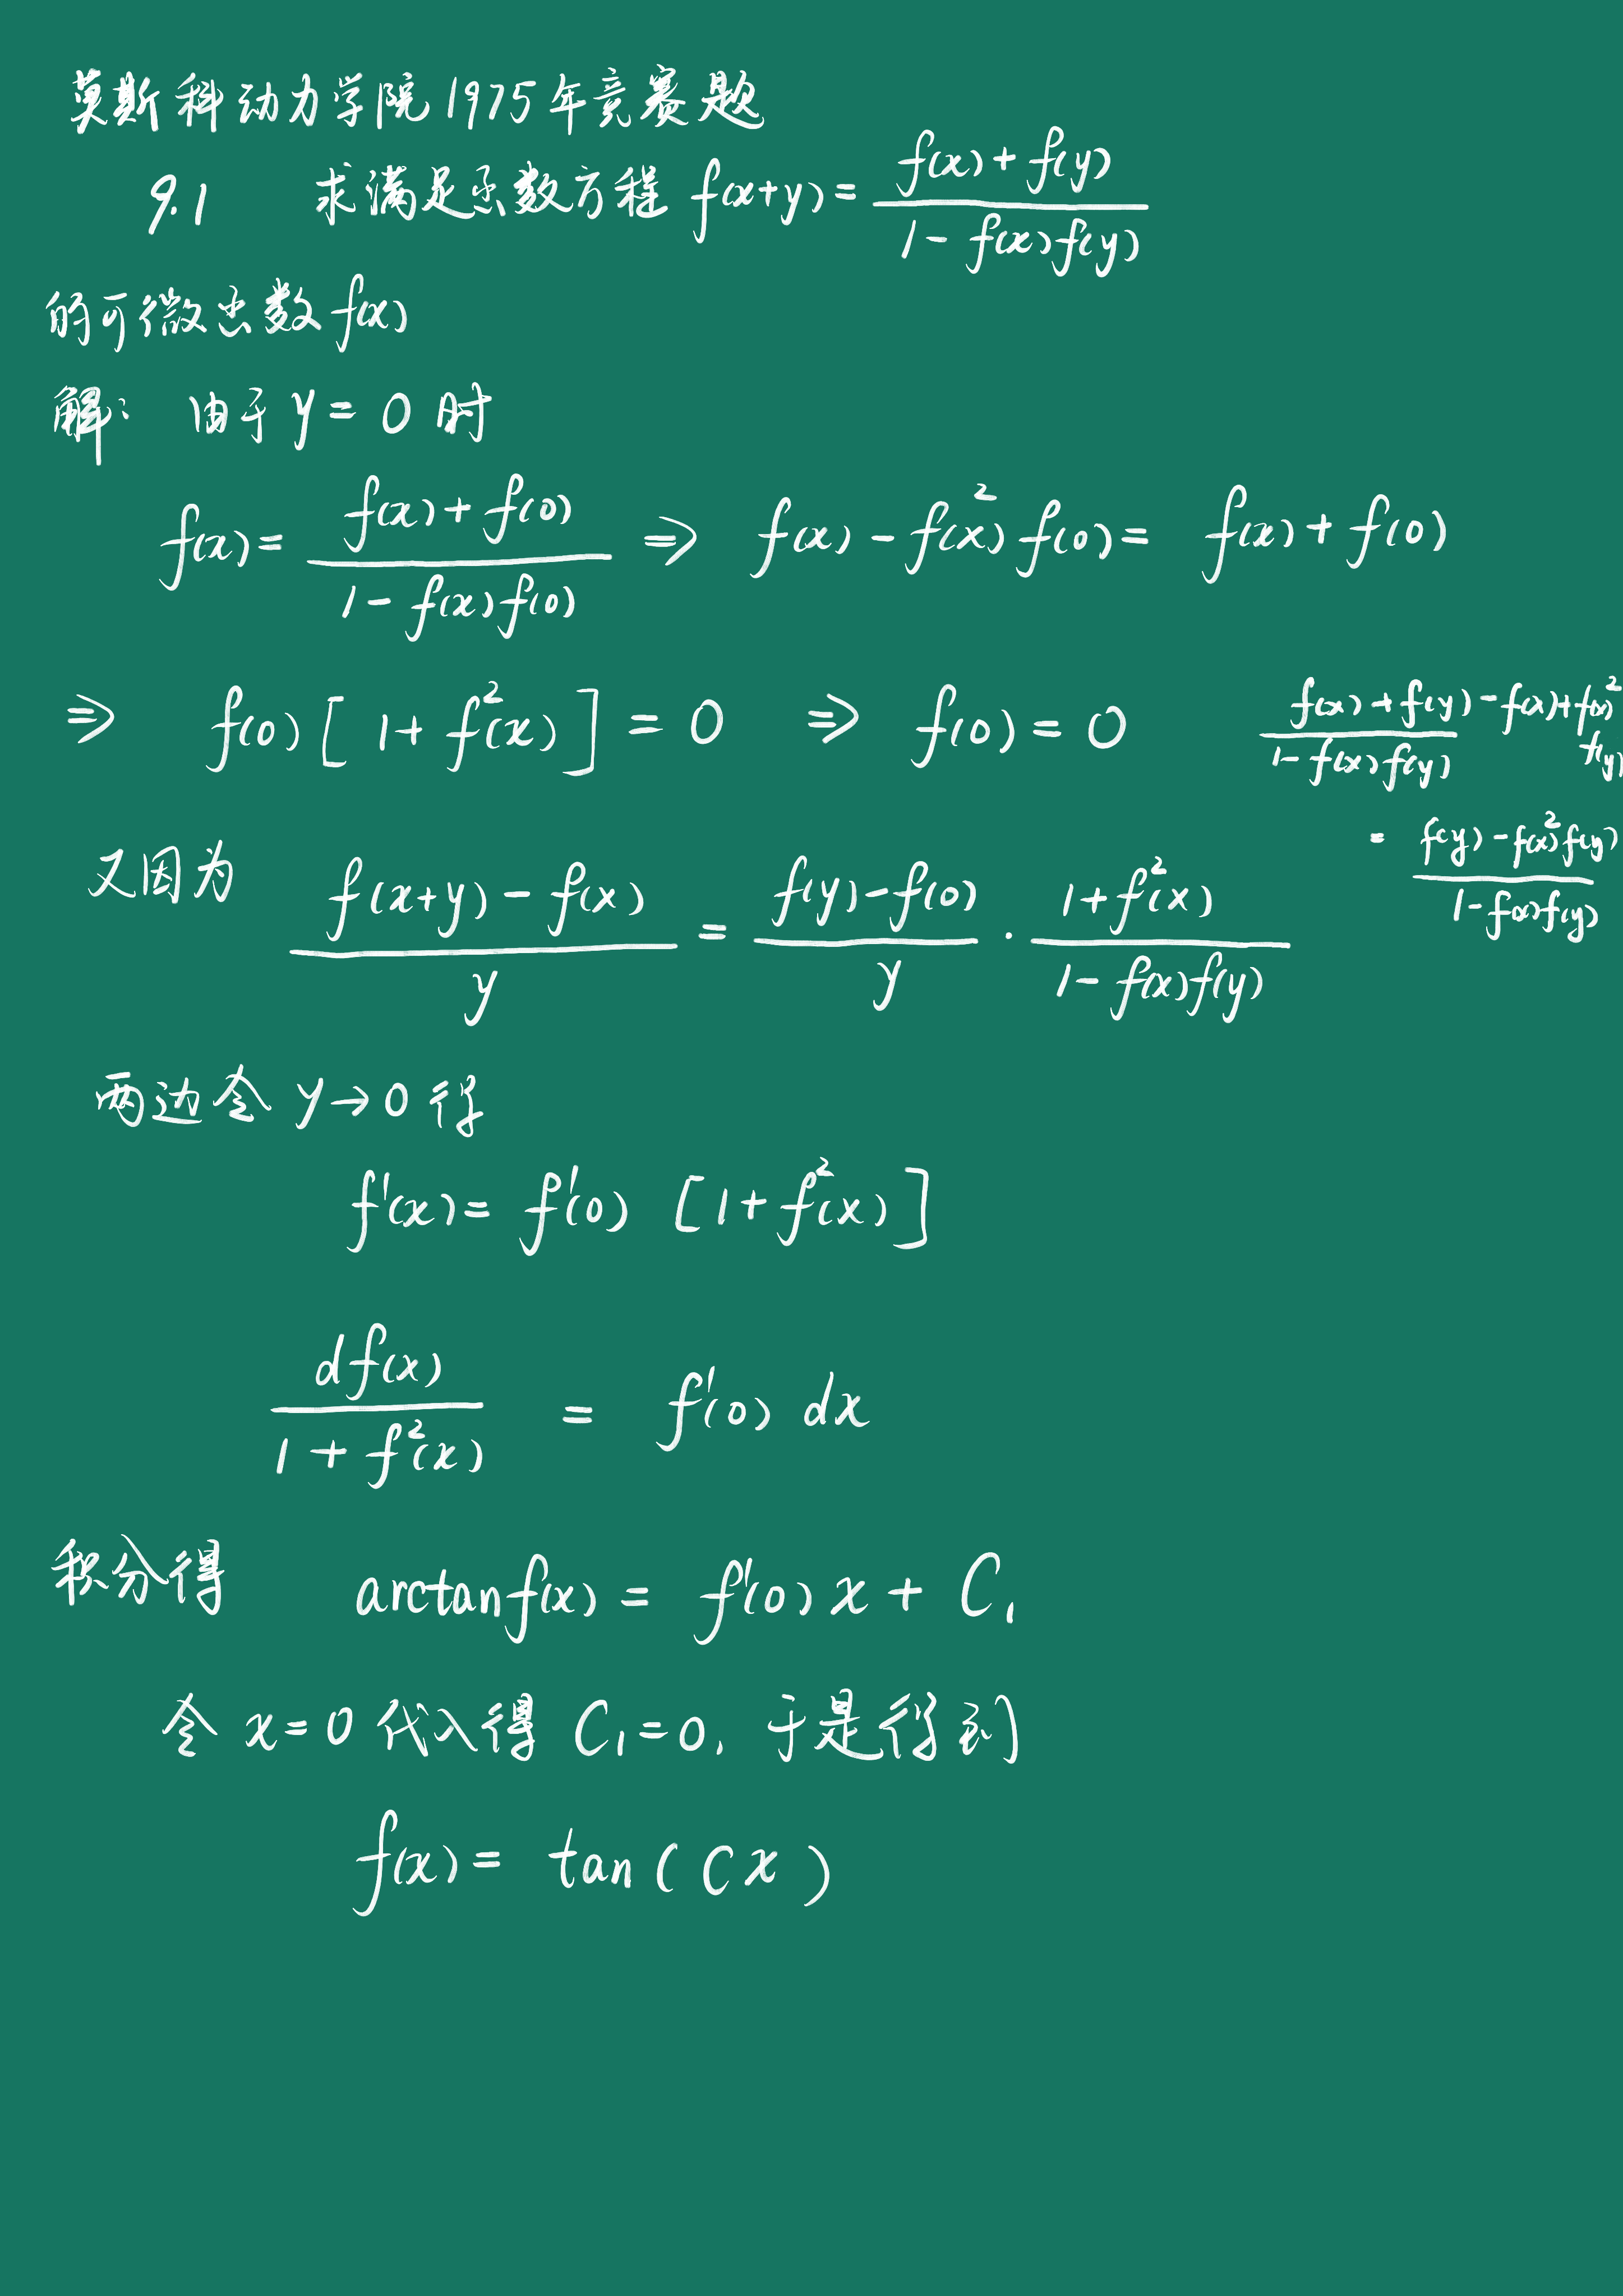 莫斯科动力学院1975年竞赛题
9.1 求满足函数方程 f(x+y) = \frac{f(x)+f(y)}{1-f(x)f(y)}
的可微函数f(x)
解: 由于 y = 0 时
f(x) = \frac{f(x)+f(0)}{1-f(x)f(0)} ⇒ f(x) - f²(x) f(0) = f(x) + f(0)
⇒ f(0) [ 1 + f²(x) ] = 0 ⇒ f(0) = 0
\frac{f(x)+f(y)-f(x)+f(x)²f(y)}{1-f(x)f(y)}
= \frac{f(y)-f(x)²f(y)}{1-f(x)f(y)}
又因为 \frac{f(x+y)-f(x)}{y} = \frac{f(y)-f(0)}{y} · \frac{1+f²(x)}{1-f(x)f(y)}
两边令 y→0 得
f'(x) = f'(0) [1 + f²(x)]
\frac{df(x)}{1+f²(x)} = f'(0) dx
积分得 arctanf(x) = f'(0) x + C₁
令 x=0 代入得 C₁=0, 于是得到
f(x) = tan(Cx)